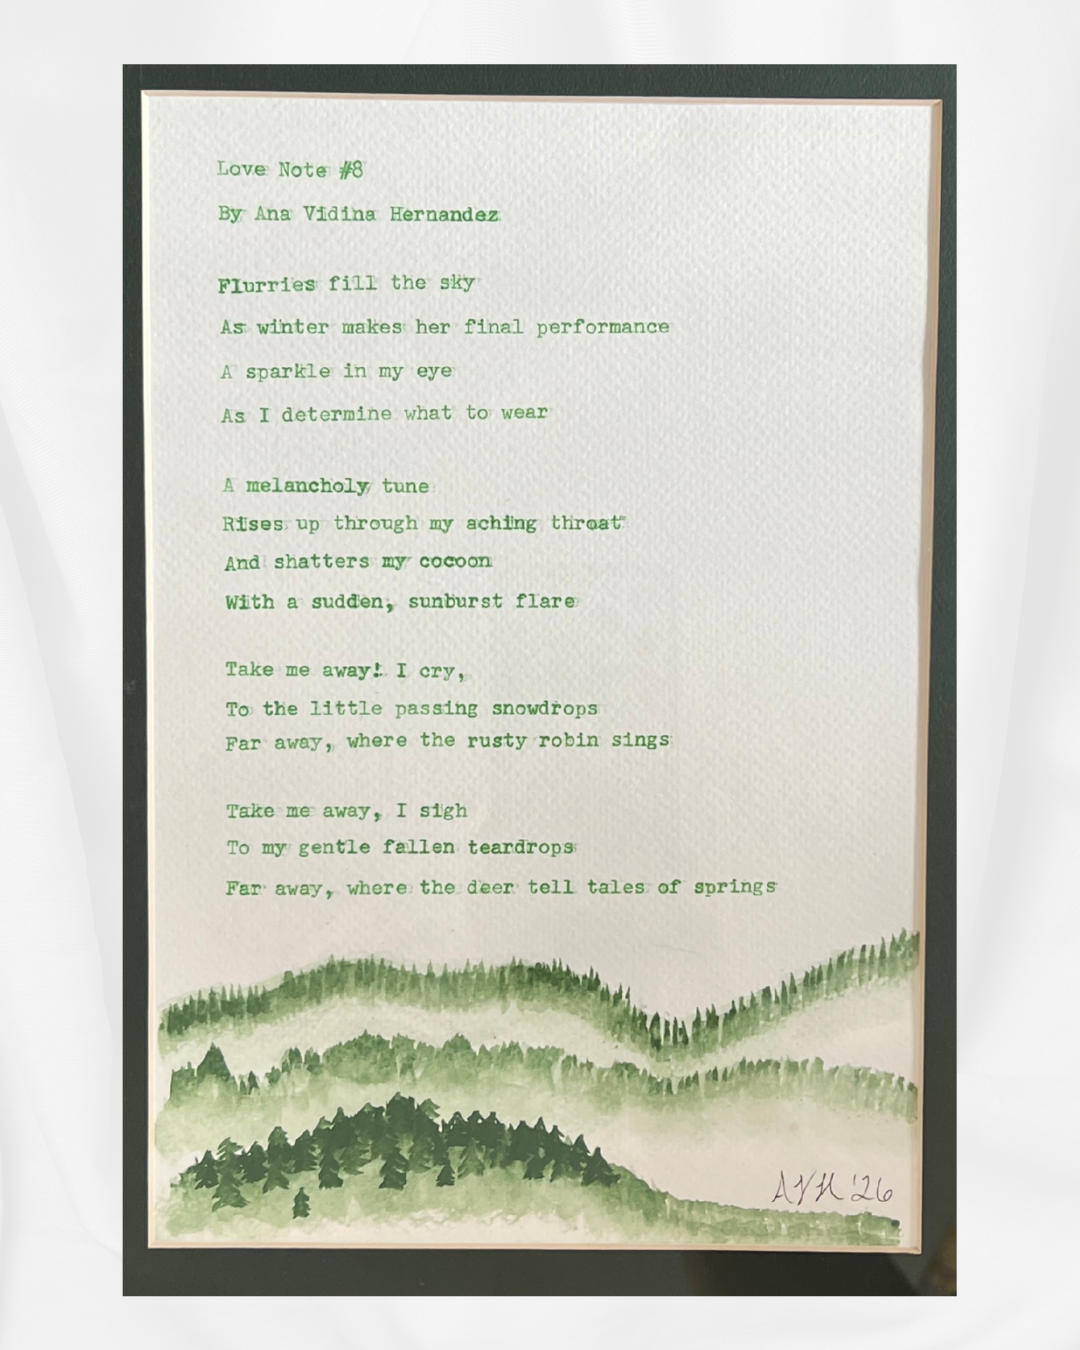 Love Note #8
By Ana Vidina Hernandez
Flurries fill the sky
As winter makes her final performance
A sparkle in my eye
As I determine what to wear
A melancholy tune
Rises up through my aching throat
And shatters my cocoon
With a sudden, sunburst flare
Take me away! I cry,
To the little passing snowdrops
Far away, where the rusty robin sings
Take me away, I sigh
To my gentle fallen teardrops
Far away, where the deer tell tales of springs
AVH '26